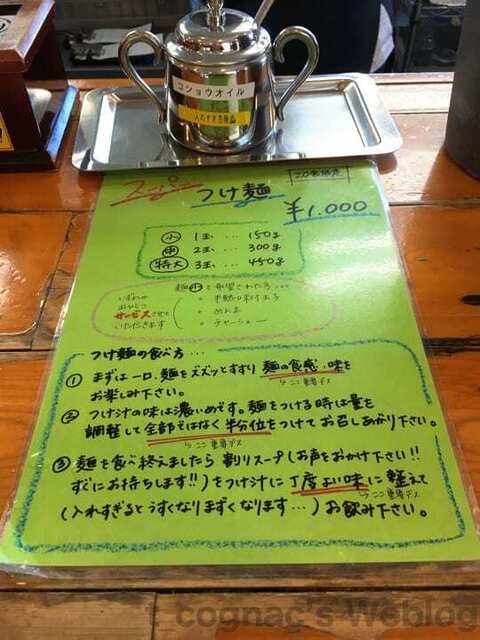 コショウオイル
入れすぎ危険
20食限定
つけ麺
¥1,000
小 1玉 … 150g
中 2玉 … 300g
特大 3玉 … 450g
麺小を希望された方…
いずれか
おひとつ
サービスさせて
いただきます
・半熟味付玉子
・めんま
・チャーシュー
つけ麺の食べ方…
① まずは一口、麺をズズッとすすり 麺の食感・味を
お楽しみ下さい。
↳ここ重要デス
② つけ汁の味は濃いめです。麺をつける時は量を
調整して全部ではなく半分位をつけてお召しあがり下さい。
↳ここ重要デス
③ 麺を食べ終えましたら 割りスープ(お声をおかけ下さい!!
すぐにお持ちします!!)をつけ汁に丁度よい味に整えて
↳ここ重要デス
(入れすぎるとうすくなりまずくなります…)お飲み下さい。
cognac's Weblog